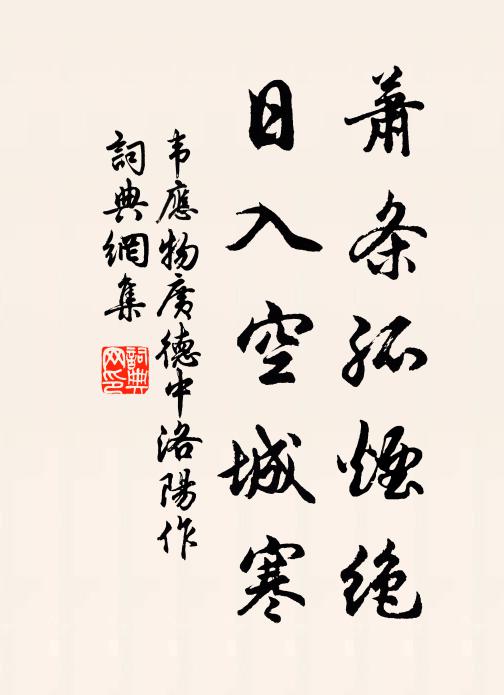 萧条孤煙绝
日入空城寒
韦應物廣德中洛陽作
詞典網集
詞典网印